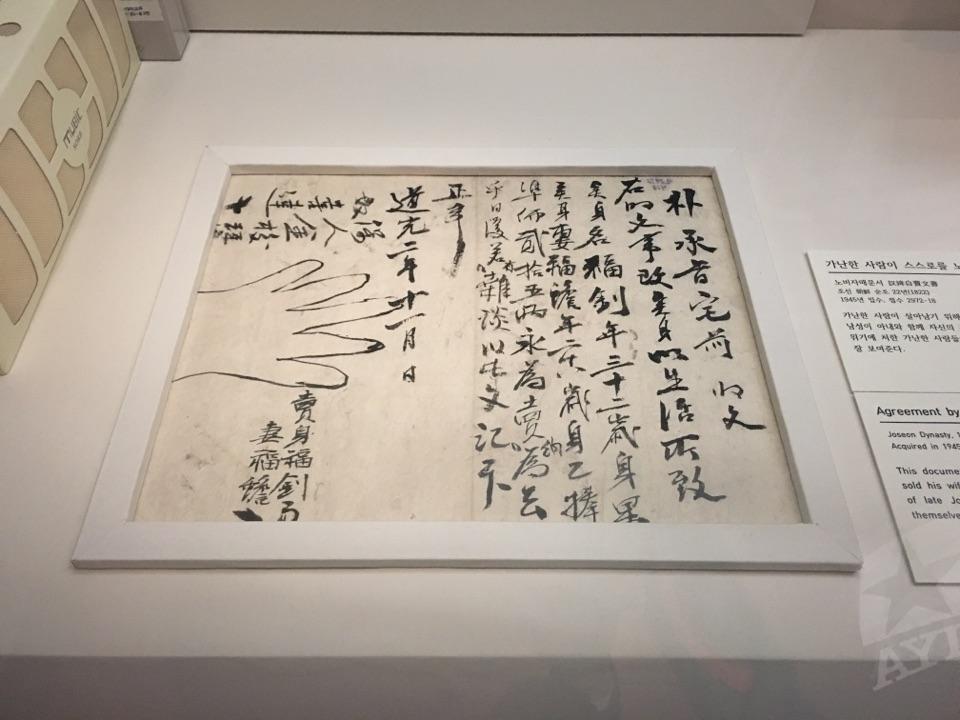 朴承旨宅前 明文
右明文事段矣身以生活所致
矣身名福釗年三十二歲身果
矣身妻福
年二十八歲身乙捧
準価貳拾五兩永爲賣納爲去
乎日後若有雜談以此文記卞
正事
道光二年十一月 日
賣身福釗
妻福
music
가난한 사람이 스스로를 노
노비자매문서 奴婢自賣文書
조선 朝鮮 순조 22년(1822)
1945년 입수, 접수 2972-18
가난한 사람이 살아남기 위해
남성이 아내와 함께 자신의
위기에 처한 가난한 사람들
장 보여준다.
Agreement by
Joseon Dynasty, 1
Acquired in 1945
This docume
sold his wif
of late Jo
themselve